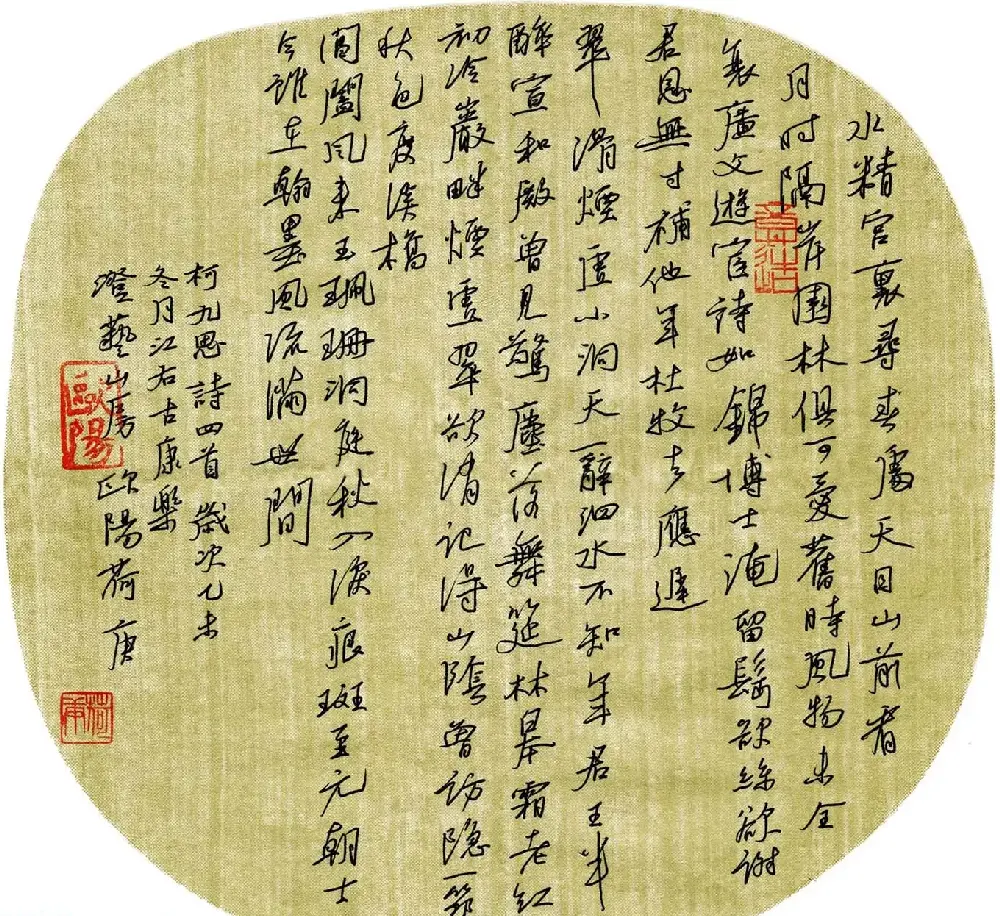 水精宫裏尋春處天目山前看
月时隔岸園林俱可愛舊時風物未全
衰廣文遊宦詩如錦博士淹留鬂欲絲欲謝
君恩無寸補他年杜牧去應遲
翠滑煙虛小洞天一辭泗水不知年君王半
醉宣和殿曾見驚塵落舞筵林暴霜老紅
初冷巖畔煙虛翠欲消記得山陰曾訪隐一筇
秋色度溪橋
閶闔風来玉珮珊洞庭秋入淚痕斑至元朝士
今誰在翰墨風流滿世間
柯九思詩四首歲次乙未
冬月江右古康樂
澄藝山房歐陽荷庚
歐陽
荷庚